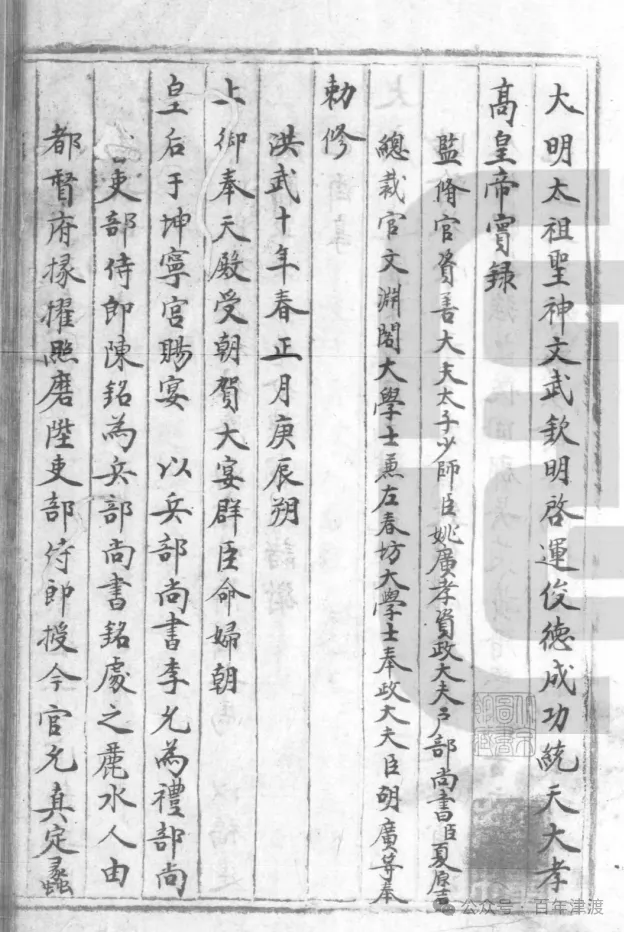 大明太祖聖神文武欽明啓運俊德成功統天大孝
高皇帝實録
監脩官資善大夫太子少師臣姚廣孝資政大夫戶部尚書臣夏原吉
總裁官文淵閣大學士兼左春坊大學士奉政大夫臣胡廣等奉
勅修
洪武十年春正月庚辰朔
上御奉天殿受朝賀大宴群臣命婦朝
皇后于坤寧宮賜宴 以兵部尚書李允為禮部尚
吏部侍郎陳銘為兵部尚書銘處之麗水人由
都督府掾擢照磨陞吏部侍郎授今官允真定蠡
公众号 · 百年津渡